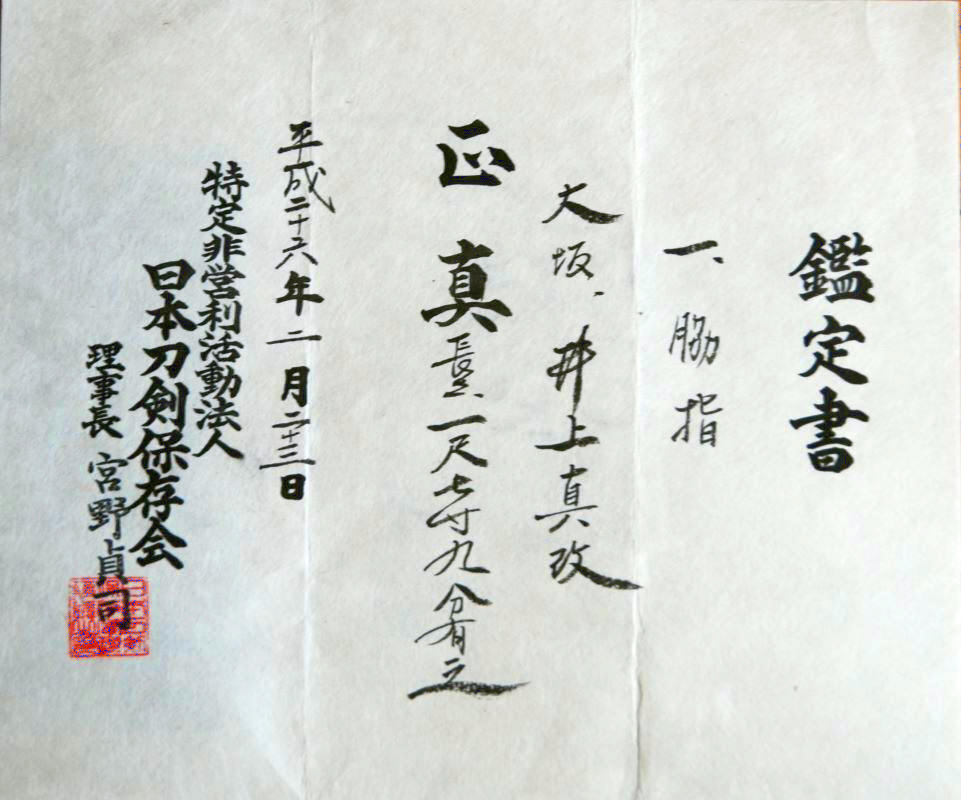 鑑定書
一、脇指
大坂、井上真改
正真
長サ一尺七寸九分有之
平成二十六年二月二十三日
特定非営利活動法人
日本刀剣保存会
理事長 宮野貞司